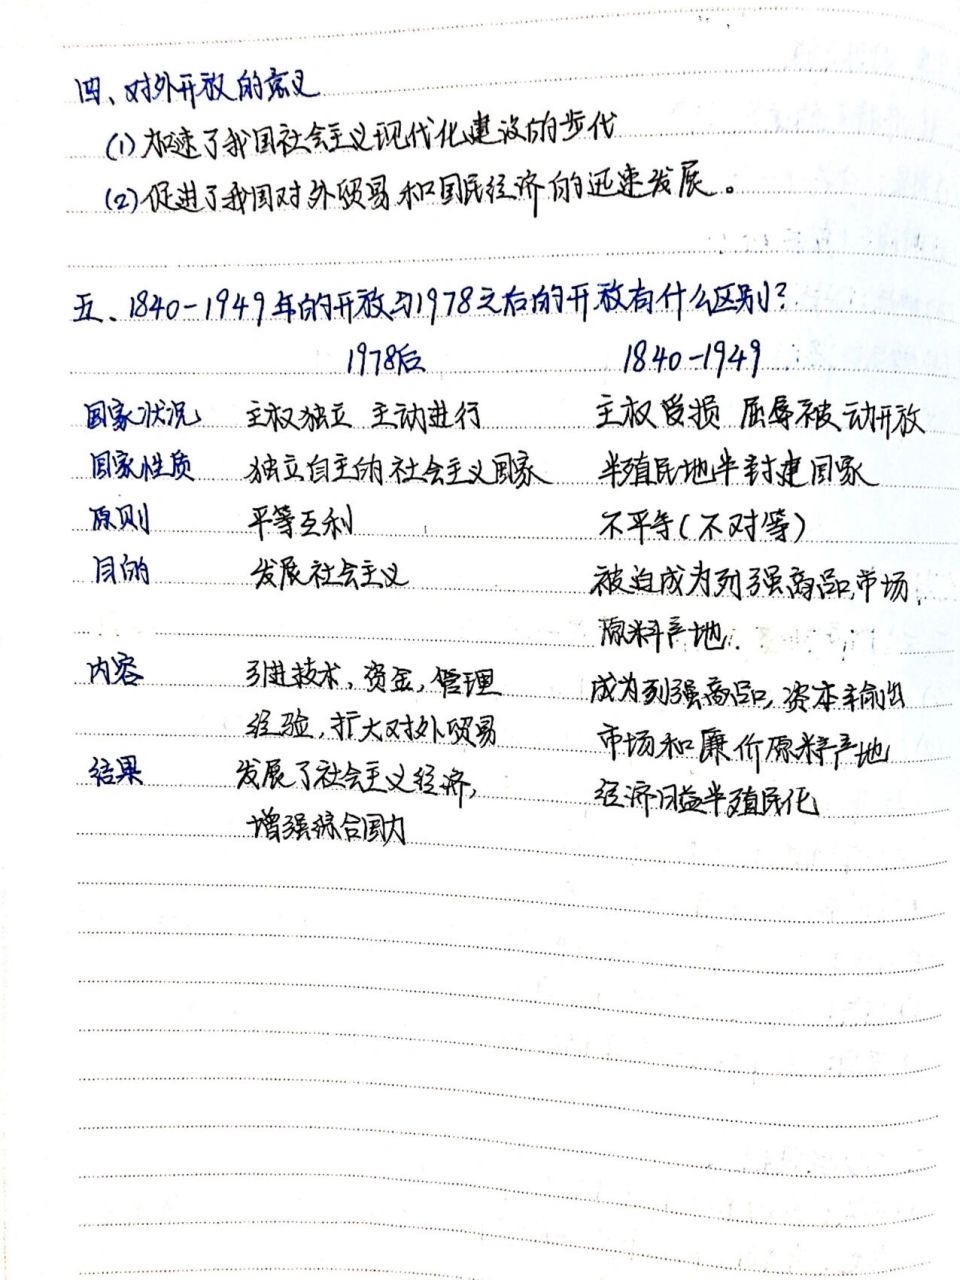 四、对外开放的意义
(1)加速了我国社会主义现代化建设的步代
(2)促进了我国对外贸易和国民经济的迅速发展。
五、1840-1949年的开放与1978之后的开放有什么区别?
1978后 1840-1949
国家状况 主权独立 主动进行 主权受损 屈辱被动开放
国家性质 独立自主的社会主义国家 半殖民地半封建国家
原则 平等互利 不平等(不对等)
目的 发展社会主义 被迫成为列强商品,市场,
原料产地.
内容 引进技术,资金,管理 成为列强商品,资本输出
经验,扩大对外贸易 市场和廉价原料产地
结果 发展了社会主义经济, 经济日益半殖民化
增强综合国力